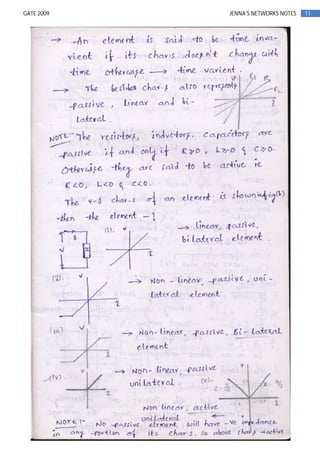 GATE 2009 JENNA'S NETWORKS NOTES 11
→ An element is said to be time inva-
rient if its char.s doesn't change with
time otherwise → time varient.
→ The besides char.s also represents
passive, linear and bi-
lateral.
NOTE:- The resistors, inductors, capacitors are
passive if and only if R≥0, L≥0 & C≥0.
Otherwise they are said to be active ie
R<0, L<0 & C<0.
The v-i char.s of an element is shown in fig(b)
then the element - ?
(i). V
→ linear, passive,
bi lateral element.
V
i
(ii). V
→ Non - linear, passive, uni -
lateral element.
i
(iii) V
→ Non-linear, passive, Bi-lateral
element
i
(iv). V
→ Non- linear, passive
unilateral. (v).
i
Non linear, active
unilateral
NOTE:- No passive element will have -ve impedance
in any portion of its char.s. so above char.s → active